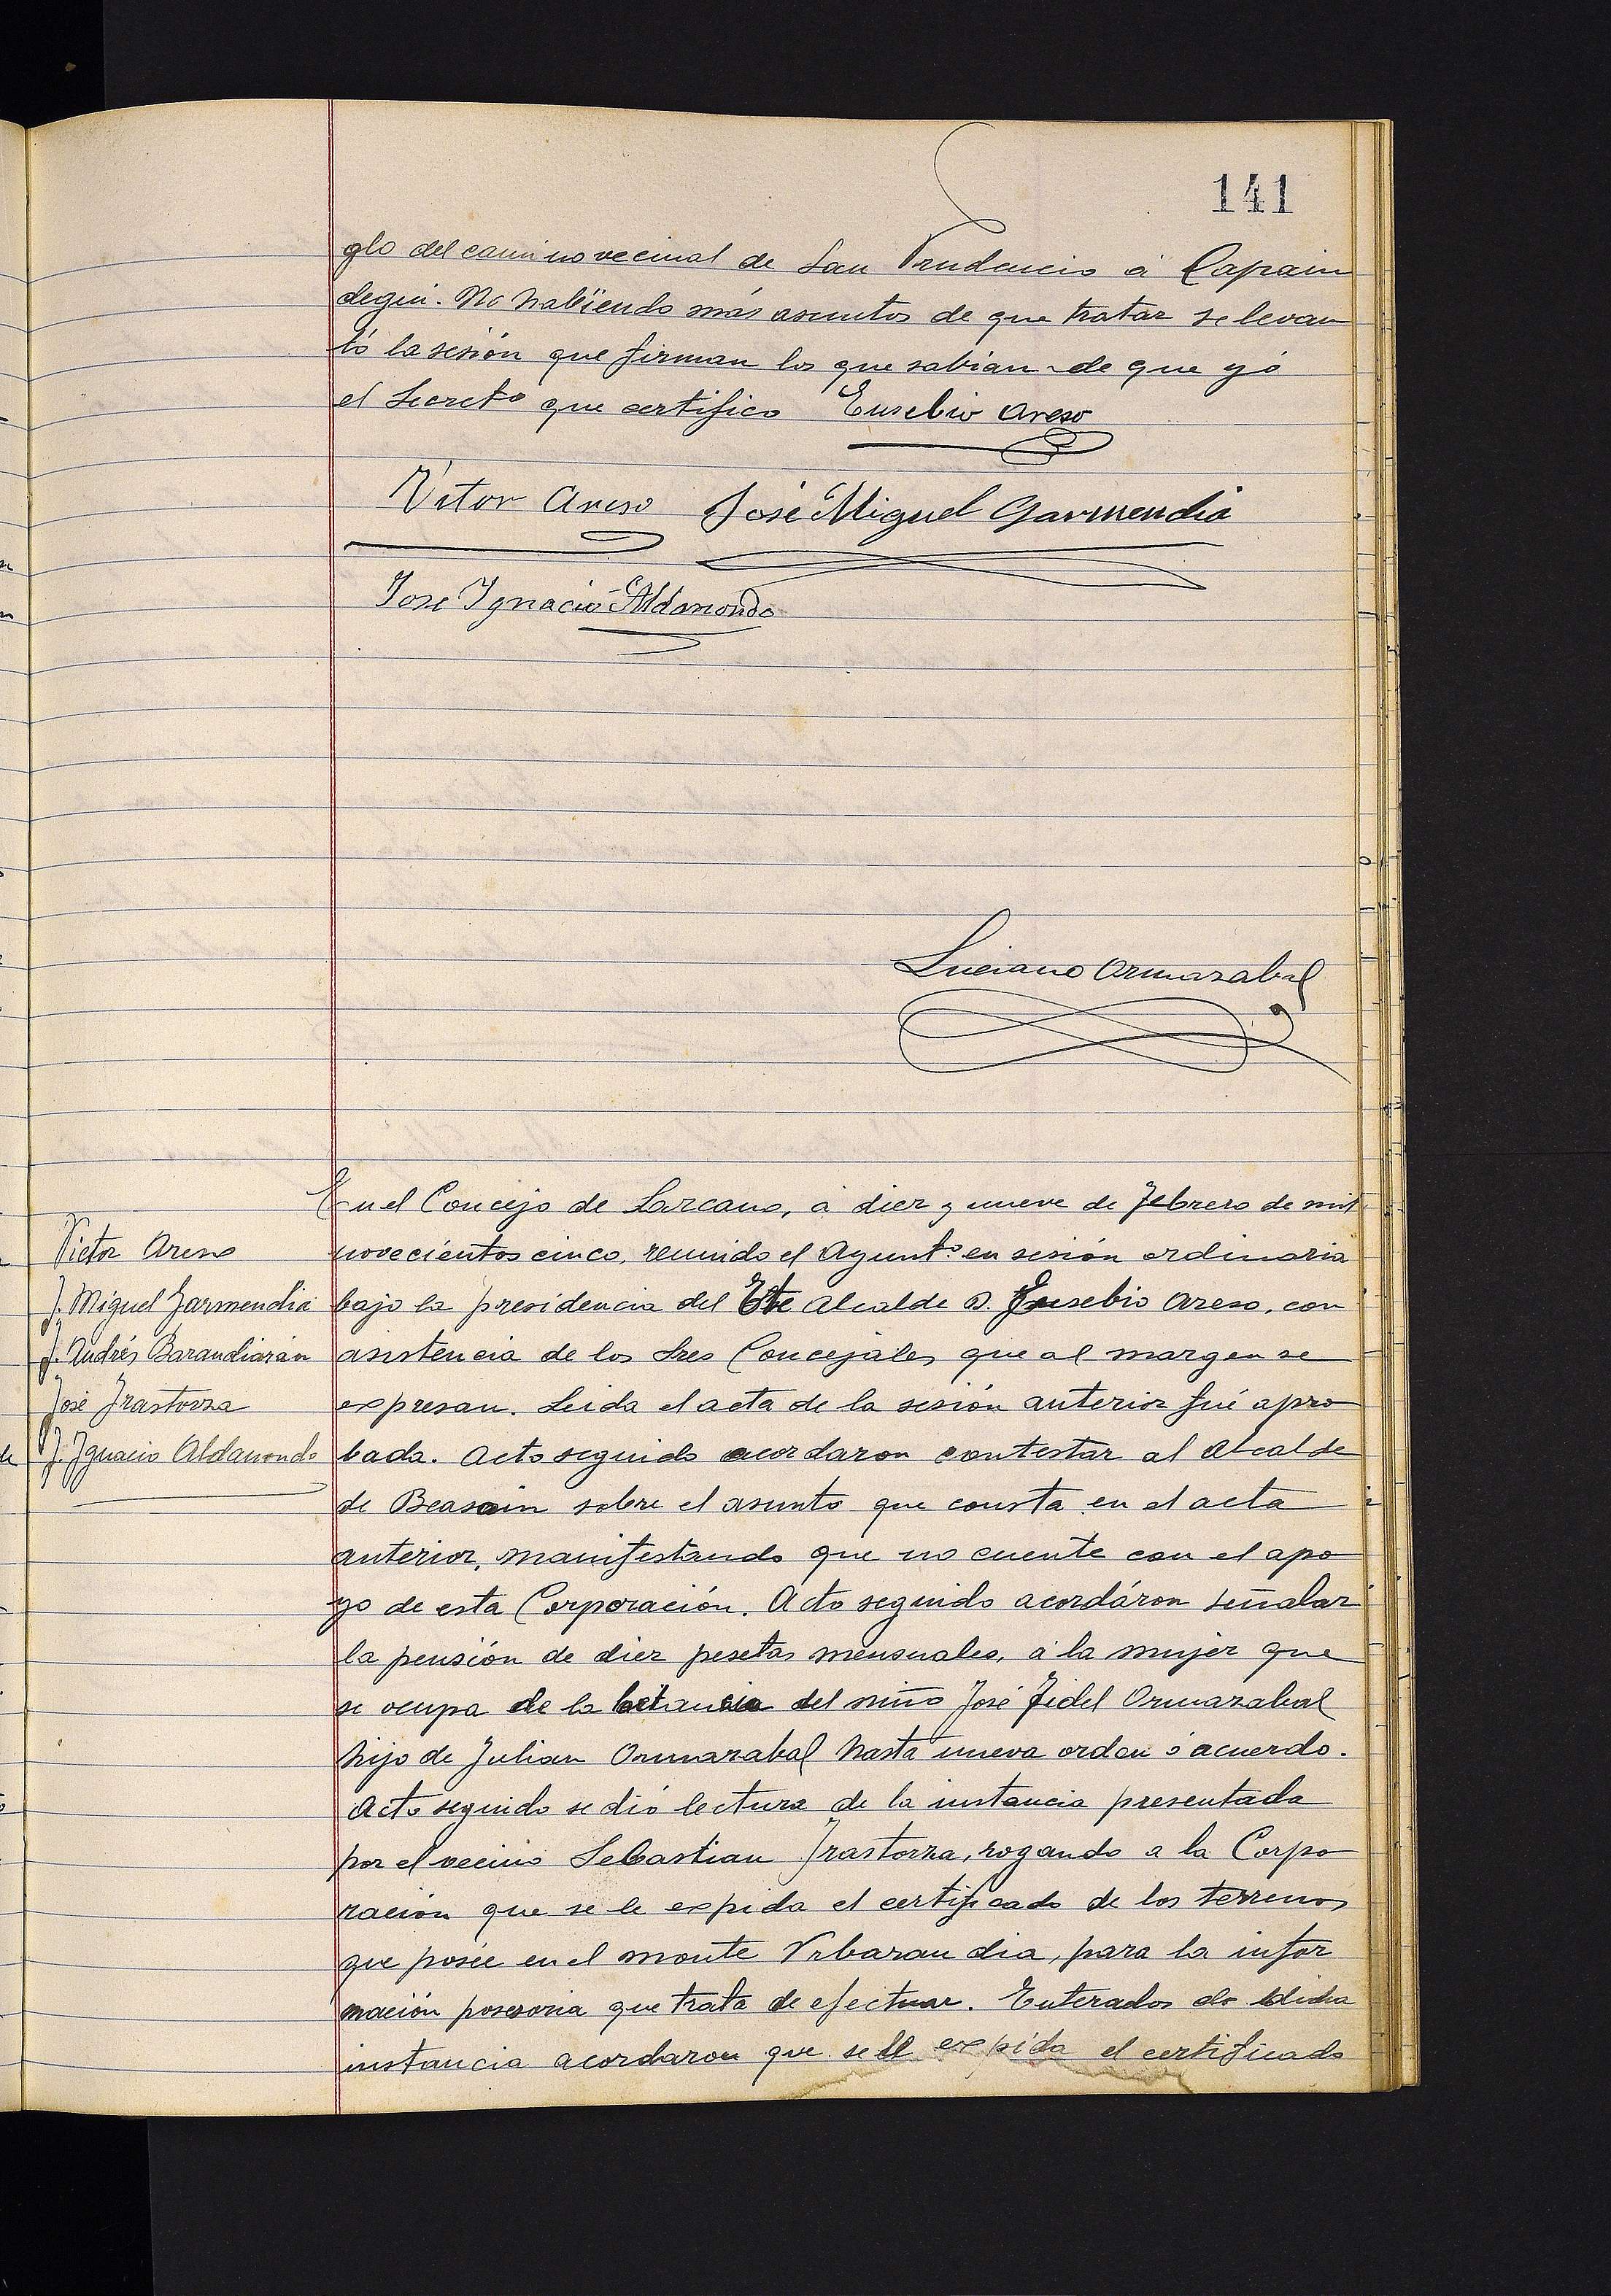 141
glo del camino vecinal de San Prudencio á Capain
degui. No habiendo más asuntos de que tratar se levan
tó la sesión que firman los que sabian de que yó
el Secret.º que certifico Eusebio Areso
Vitor Areso José Miguel Garmendia
Jose Ignacio Aldanondo
Luciano Ormazabal
En el Concejo de Lazcano, á diez y nueve de Febrero de mil
novecientos cinco, reunido el Ayunt.º en sesión ordinaria
bajo la presidencia del Alcalde D. Eusebio Areso, con
asistencia de los Sres Concejales que al margen se
expresan. Leida el acta de la sesión anterior fué apro
bada. Acto seguido acordaron contestar al Alcalde
de Beasain sobre el asunto que consta en el acta
anterior, manifestando que no cuente con el apo
yo de esta Corporación. Acto seguido acordáron señalar
la pensión de diez pesetas mensuales, á la mujer que
se ocupa de la lactancia del niño José Fidel Ormazabal
hijo de Julian Ormazabal hasta nueva orden ó acuerdo.
Acto seguido se dió lectura de la instancia presentada
por el vecino Sebastian Irastorza, rogando a la Corpo
ración que se le expida el certificado de los terrenos
que posée en el monte Urbarandia, para la infor
mación posesoria que trata de efectuar. Enterados de dicha
instancia acordaron que se le expida el certificado
Victor Areso
J. Miguel Garmendia
J. Andrés Barandiarán
José Irastorza
J. Ignacio Aldanondo